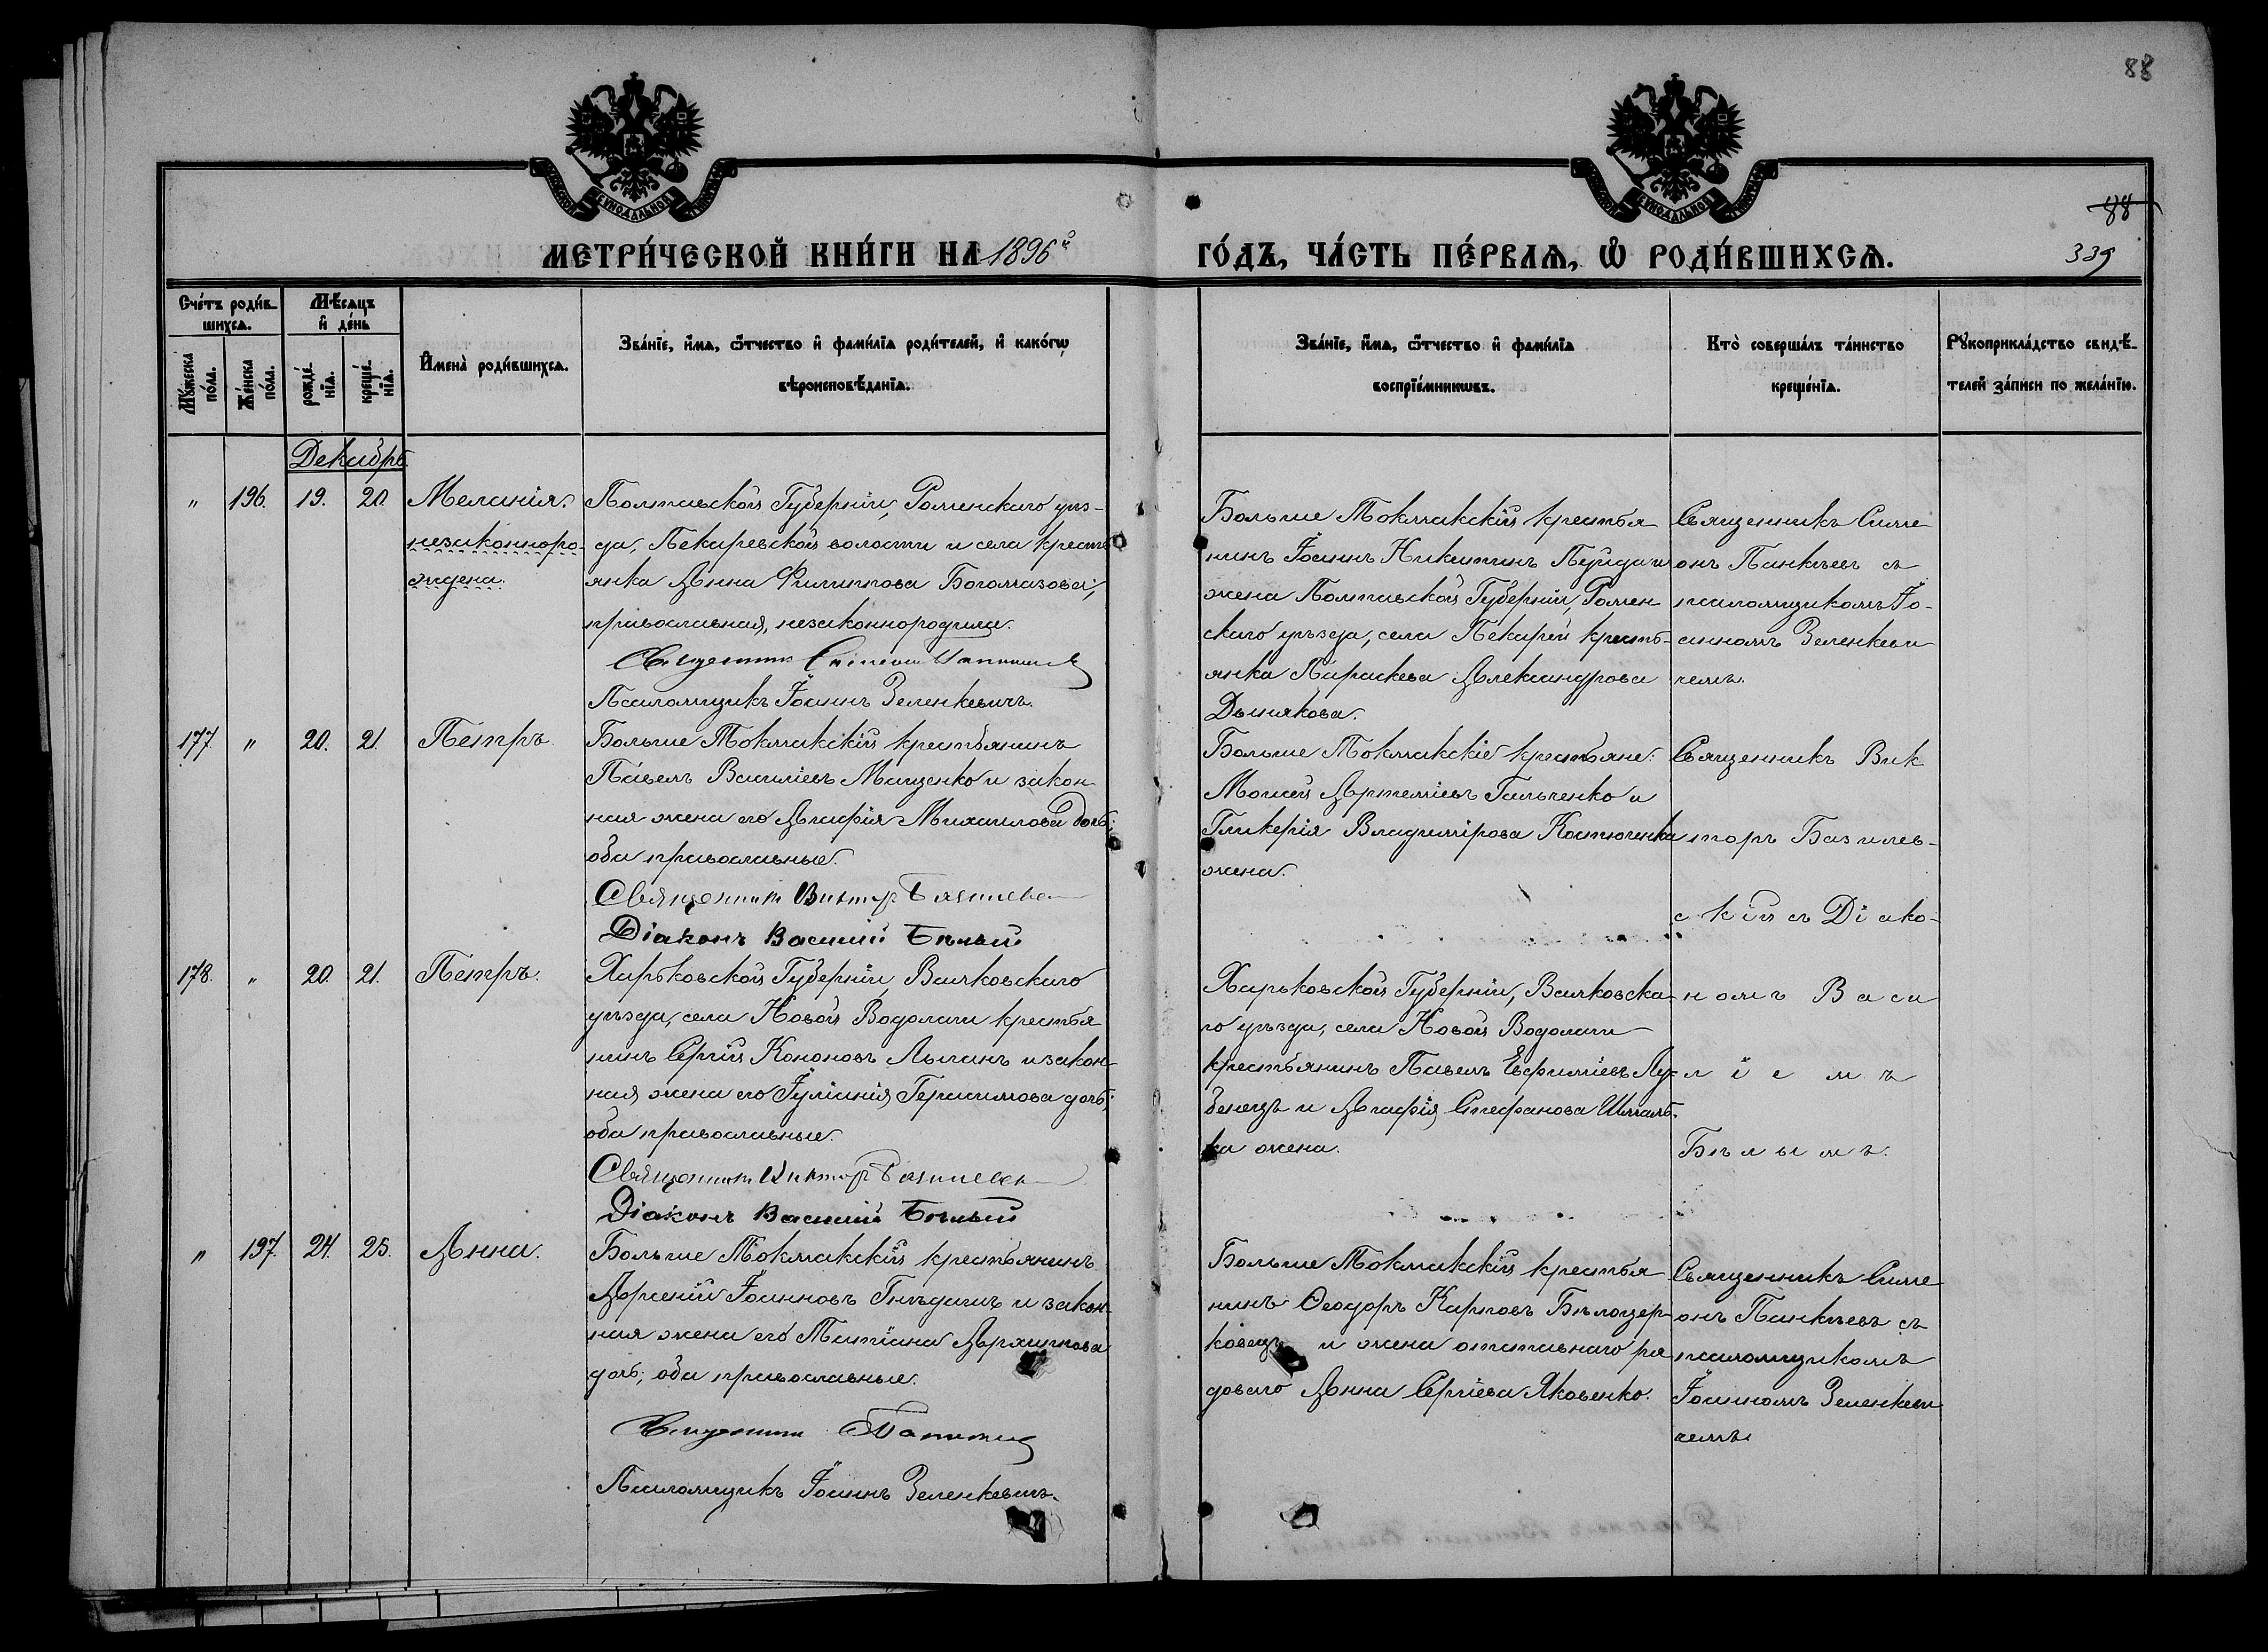 88
88
339
МЕТРИ́ЧЕСКОЙ КНИ́ГИ НА 1896й
ГО́ДЪ, ЧА́СТЬ ПЕ́РВАѦ, Ѡ҆ РОДИ́ВШИХСѦ.
Сче́тъ роди́в-
шихсѧ.
Мꙋ́жеска
по́ла.
Же́нска
по́ла.
Мѣ́сѧцъ
и҆ де́нь
рожде́-
нїѧ.
креще́-
нїѧ.
И҆мена̀ роди́вшихсѧ.
Зва́нїе, и҆́мѧ, ѻ҆́тчество и҆ фами́лїѧ роди́телей, и҆ како́гѡ
вѣроисповѣ́данїѧ.
Зва́нїе, и҆́мѧ, ѻ҆́тчество и҆ фами́лїѧ
воспрїе́мникѡвъ.
Кто̀ соверша́лъ та́инство
креще́нїѧ.
Рꙋкоприкла́дство свидѣ́-
телей за́писи по жела́нїю.
Декабрь
" 196. 19. 20. Меланія.
незаконноро-
ждена.
Полтавской Губерніи, Роменскаго уѣз-
да, Пекаревской волости и села кресть
янка Анна Филиппова Богомазова,
православная, незаконнородила.
Священникъ Симеонъ
Псаломщикъ Іоаннъ Зеленкевичъ.
Больше Токмакскій крестья
нинъ Іоаннъ Никитинъ и
жена Полтавской Губерніи, Ромен
скаго уѣзда, села Пекарей кресть-
янка Параскева Александрова
Дынякова.
Священникъ Симе
онъ Панкѣевъ съ
псаломщикомъ Іо-
анномъ Зеленкеви
чемъ.
177. " 20. 21. Петръ.
Больше Токмакскій крестьянинъ
Павелъ Василіевъ Мащенко и закон
ная жена его Агафія Михаилова дочь;
оба православные.
Священникъ Викторъ Базилев
Діаконъ Василій Бѣлый
Больше Токмакскіе крестьяне:
Моисей Артеміевъ Гальченко и
Гликерія Владимірова Костюченка
жена.
Священникъ Вик
торъ Базилев-
скій съ Діако-
номъ Васи
ліемъ
Бѣлымъ.
178. " 20. 21. Петръ.
Харьковской Губерніи, Валковскаго
уѣзда, села Новой Водолаги крестья
нинъ Сергій Кононовъ Лысанъ и закон-
ная жена его Іуліанія Герасимова дочь;
оба православные.
Священникъ Викторъ Базилевск
Діаконъ Василій Бѣлый
Харьковской Губерніи, Валковска-
го уѣзда, села Новой Водолаги
крестьянинъ Павелъ Евфиміевъ Лу-
бенецъ и Агафія Стефанова Шмаль-
ка жена.
" 197. 24. 25. Анна.
Больше Токмакскій крестьянинъ
Арсеній Іоанновъ Гнѣдашъ и закон
ная жена его Татіана Архиппова
дочь; оба православные.
Священникъ
Псаломщикъ Іоаннъ Зеленкевичъ.
Больше Токмакскій крестья
нинъ Ѳеодоръ Карповъ Бѣлоцер-
ковецъ и жена отставнаго ря
доваго Анна Сергіева Яковенко.
Священникъ Симе
онъ Панкѣевъ съ
псаломщикомъ
Іоанномъ Зеленкеви
чемъ